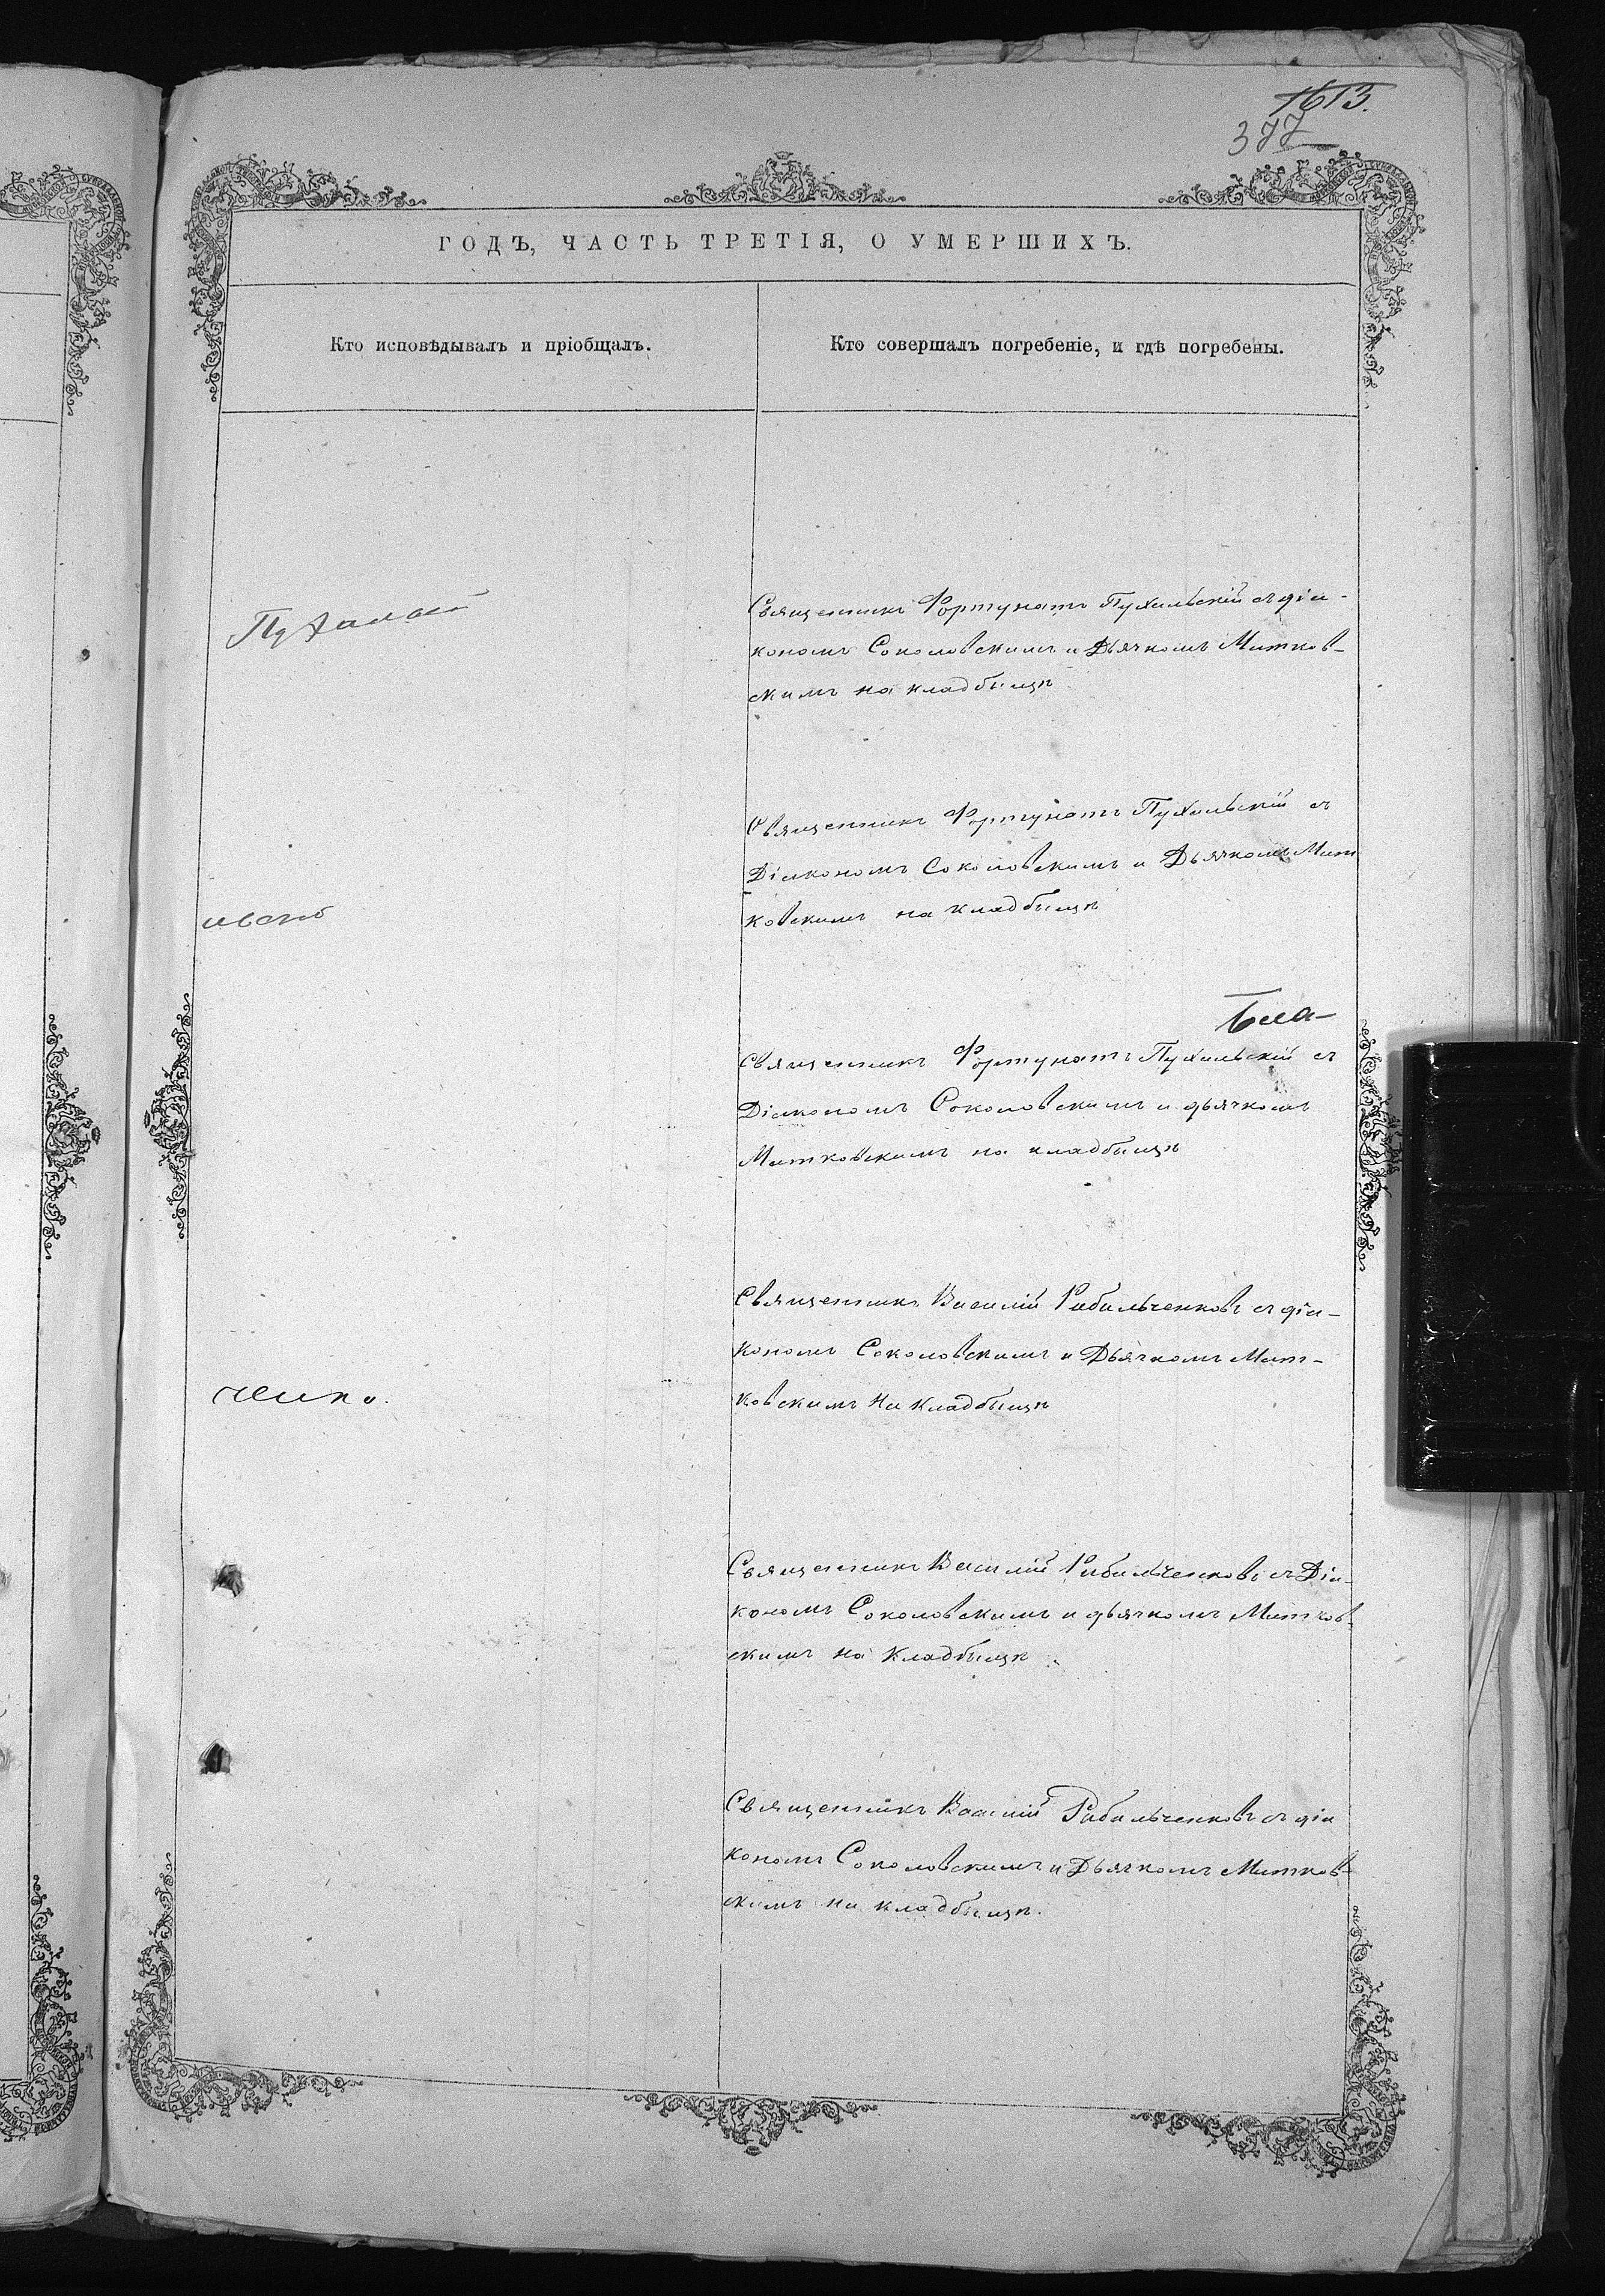 1613.
377
ГОДЪ, ЧАСТЬ ТРЕТІЯ, О УМЕРШИХЪ.
Кто исповѣдывалъ и пріобщалъ.
Кто совершалъ погребеніе, и гдѣ погребены.
Священникъ Фортунатъ Пухальскій съ діа-
кономъ Соколовскимъ и Дьячкомъ Митков-
скимъ на кладбищѣ
Священникъ Фортунатъ Пухальскій съ
Діакономъ Соколовскимъ и Дьячкомъ Мит
ковскимъ на кладбищѣ
Священникъ Фортунатъ Пухальскій съ
Діакономъ Соколовскимъ и дьячкомъ
Митковскимъ на кладбищѣ
Священникъ Василій Рибальченковъ съ діа-
кономъ Соколовскимъ и Дьячкомъ Мит-
ченко.
ковскимъ на кладбищѣ
Священникъ Василій Рибальченковъ съ Діа-
кономъ Соколовскимъ и дьячкомъ Митков-
скимъ на кладбищѣ
Священникъ Василій Рибальченковъ съ діа
кономъ Соколовскимъ и Дьячкомъ Митков-
скимъ на кладбищѣ.